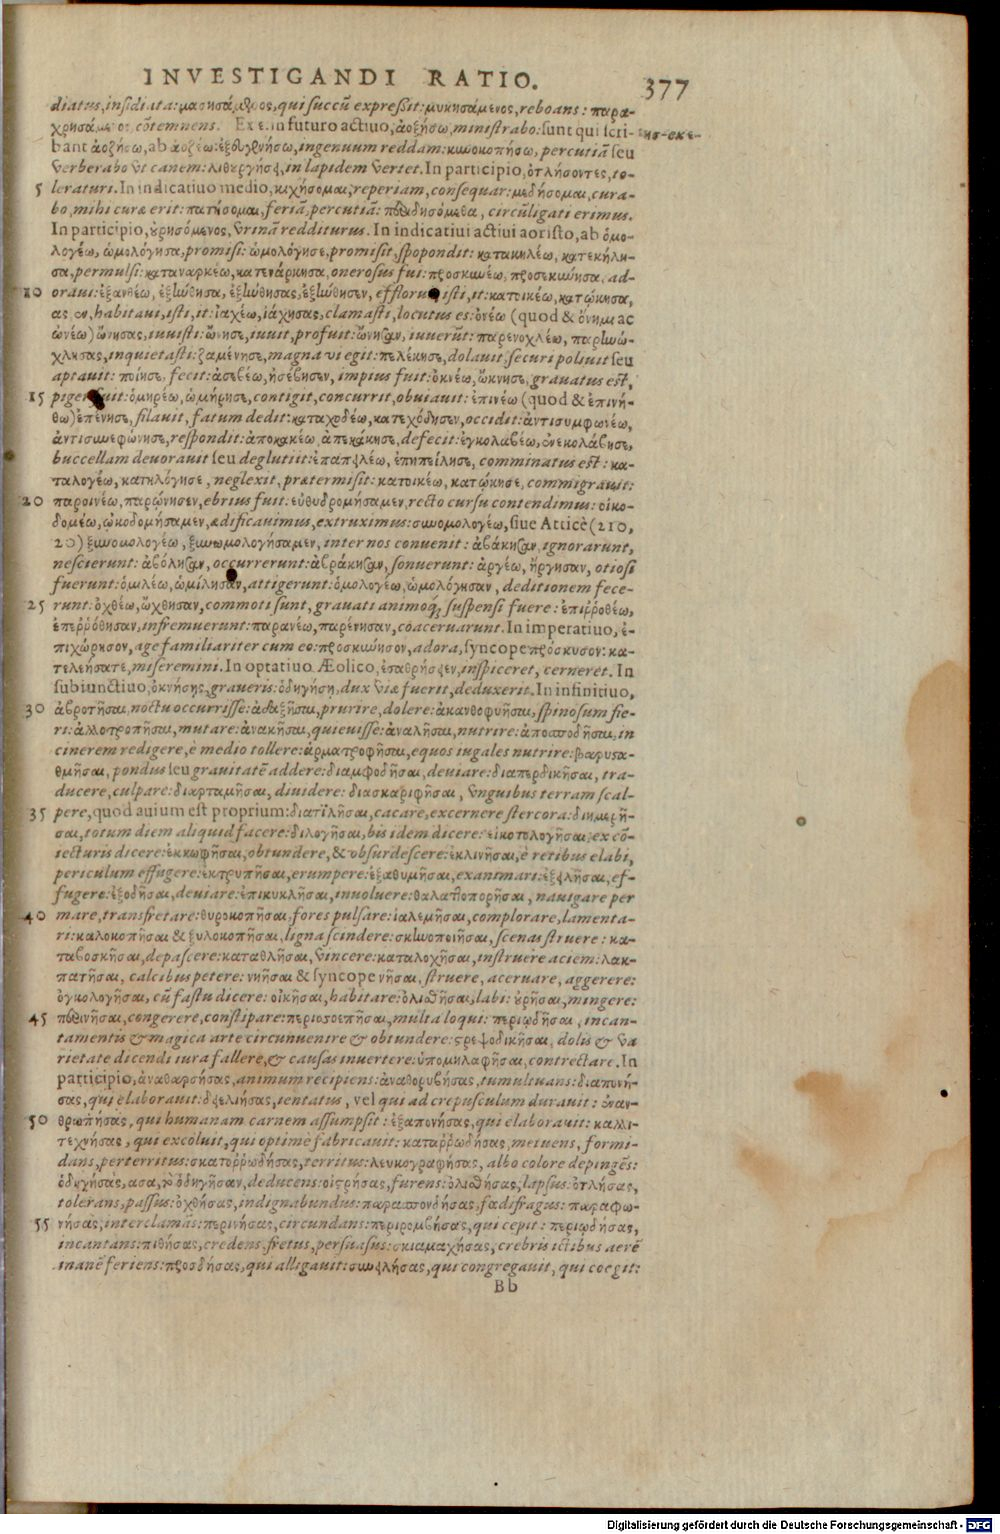 INVESTIGANDI RATIO. 377
diatus, insidiata: μασησάμενος, qui succũ expreßit: μυκησάμενος, reboans: παρα-
χρησάμενος cõtemnens. Ex ε in futuro actiuo, ἀοζήσω, ministrabo: sunt qui scri-
bant ἀοζήσω, ab ἀοζέω: ingenuum reddam: κυνοκοπήσω, percutiã seu
verberabo vt canem: λιθουργήσει, in lapidem vertet. In participio, ὀτλήσοντες, to-
5 leraturi. In indicatiuo medio, κιχήσομαι, reperiam, consequar: μεδήσομαι, cura-
bo, mihi curæ erit: πατήσομαι, feriã, percutiã: circũligati erimus.
In participio, οὐρησόμενος, vrinã redditurus. In indicatiui actiui aoristo, ab ὁμο-
λογέω, ὡμολόγησα, promisi: ὡμολόγησε, promisit, spopondit: κατακηλέω, κατεκήλη-
σα, permulsi: καταναρκέω, κατενάρκησα, onerosus fui: προσκυνέω, προσεκύνησα, ad-
10 oraui: ἐξανθέω, ἐξήνθησα, ἐξήνθησας, ἐξήνθησεν, efflorui, isti, it: κατοικέω, κατῴκησα,
ας εν, habitaui, isti, it: ἰαχέω, ἰάχησας, clamasti, locutus es: ὀνέω (quod & ὄνημι ac
ὠνέω) ὤνησας, iuuisti: ὤνησε, iuuit, profuit: ὤνησαν, iuuerũt: παρενοχλέω, παρηνώ-
χλησας, inquietasti: ζαμένησε, magna vi egit: πελέκησε, dolauit, securi poliuit seu
aptauit: ποίησε, fecit: ἀσεβέω, ἠσέβησεν, impius fuit: ὀκνέω, ὤκνησε, grauatus est,
15 piger fuit: ὁμηρέω, ὡμήρησε, contigit, concurrit, obuiauit: ἐπινέω (quod & ἐπινή-
θω) ἐπένησε, filauit, fatum dedit: καταχοδέω, κατεχόδησεν, occidit: ἀντισυμφωνέω,
ἀντισυνεφώνησε, respondit: ἀποκακέω, ἀπεκάκησε, defecit: ἐγκολαβέω, ἐνεκολάβησε,
buccellam deuorauit seu deglutiit: ἐπαπειλέω, ἐπηπείλησε, comminatus est: κα-
ταλογέω, κατηλόγησε, neglexit, prætermisit: κατοικέω, κατῴκησε, commigrauit:
20 παροινέω, παρῴνησεν, ebrius fuit: εὐθυδρομήσαμεν, recto cursu contendimus: οἰκο-
δομέω, ᾠκοδομήσαμεν, ædificauimus, extruximus: συνομολογέω, siue Atticè (210,
20) ξυνομολογέω, ξυνωμολογήσαμεν, inter nos conuenit: ἀβάκησαν, ignorarunt,
nescierunt: ἀβόλησαν, occurrerunt: ἀβράκησαν, sonuerunt: ἀργέω, ἤργησαν, otiosi
fuerunt: ὁμιλέω, ὡμίλησαν, attigerunt: ὁμολογέω, ὡμολόγησαν, deditionem fece-
25 runt: ὀχθέω, ὤχθησαν, commoti sunt, grauati animoq́; suspensi fuere: ἐπιῤῥοθέω,
ἐπεῤῥόθησαν, infremuerunt: παρανέω, παρένησαν, coaceruarunt. In imperatiuo, ἐ-
πιχώρησον, age familiariter cum eo: προσκύνησον, adora, syncope πρόσκυσον: κα-
τελεήσατε, miseremini. In optatiuo Æolico, ἐσαθρήσειεν, inspiceret, cerneret. In
subiunctiuo, ὀκνήσῃς, graueris: ὁδηγήσῃ, dux viæ fuerit, deduxerit. In infinitiuo,
30 ἀβροτῆσαι, noctu occurrisse: ἀδαξῆσαι, prurire, dolere: ἀκανθοφυῆσαι, spinosum fie-
ri: ἀλλοτροπῆσαι, mutare: ἀνακῆσαι, quieuisse: ἀναλῆσαι, nutrire: ἀποσποδῆσαι, in
cinerem redigere, è medio tollere: ἁρματροφῆσαι, equos iugales nutrire: βαρυστα-
θμῆσαι, pondus seu grauitatẽ addere: διαμφοδῆσαι, deuiare: διαπερδικῆσαι, tra-
ducere, culpare: διαρταμῆσαι, diuidere: διασκαριφῆσαι, vnguibus terram scal-
35 pere, quod auium est proprium: διατιλῆσαι, cacare, excernere stercora: διημερῆ-
σαι, totum diem aliquid facere: διλογῆσαι, bis idem dicere: εἰκοτολογῆσαι, ex cõ-
iecturis dicere: ἐκκωφῆσαι, obtundere, & obsurdescere: ἐκλινῆσαι, è retibus elabi,
periculum effugere: ἐκτρυπῆσαι, erumpere: ἐξαθυμῆσαι, exanimari: ἐξειλῆσαι, ef-
fugere: ἐξοδῆσαι, deuiare: ἐπικυκλῆσαι, inuoluere: θαλαττοπορῆσαι, nauigare per
40 mare, transfretare: θυροκοπῆσαι, fores pulsare: ἰαλεμῆσαι, complorare, lamenta-
ri: καλοκοπῆσαι & ξυλοκοπῆσαι, ligna scindere: σκηνοποιῆσαι, scenas struere: κα-
ταβοσκῆσαι, depascere: καταθλῆσαι, vincere: καταλοχῆσαι, instruere aciem: λακ-
πατῆσαι, calcibus petere: νηῆσαι & syncope νῆσαι, struere, aceruare, aggerere:
ὀγκολογῆσαι, cũ fastu dicere: οἰκῆσαι, habitare: ὀλισθῆσαι, labi: οὐρῆσαι, mingere:
45 congerere, constipare: περισσοεπῆσαι, multa loqui: περιῳδῆσαι, incan-
tamentis & magica arte circunuenire & obtundere: στρεψοδικῆσαι, dolis & va
rietate dicendi iura fallere, & causas inuertere: ὑπομηλαφῆσαι, contrectare. In
participio, ἀναθαρσήσας, animum recipiens: ἀναθορυβήσας, tumultuans: διαπονή-
σας, qui elaborauit: δειελιήσας, ientatus, vel qui ad crepusculum durauit: ἐναν-
50 θρωπήσας, qui humanam carnem assumpsit: ἐξαπονήσας, qui elaborauit: καλλι-
τεχνήσας, qui excoluit, qui optimè fabricauit: καταῤῥωδήσας, metuens, formi-
dans, perterritus: σκατοῤῥωδήσας, territus: λευκογραφήσας, albo colore depingẽs:
ὁδηγήσας, ασα, τὸ ὁδηγῆσαν, deducens: οἰστρήσας, furens: ὀλισθήσας, lapsus: ὀτλήσας,
tolerans, passus: ὀχθήσας, indignabundus: παρασπονδήσας, fœdifragus: παραφω-
55 νήσας, interclamãs: περινήσας, circundans: περιρομβήσας, qui cepit: περιῳδήσας,
incantans: πιθήσας, credens, fretus, persuasus: σκιαμαχήσας, crebris ictibus aerẽ
inanẽ feriens: προσδήσας, qui alligauit: συνειλήσας, qui congregauit, qui coegit:
Bb
Digitalisierung gefördert durch die Deutsche Forschungsgemeinschaft - DFG